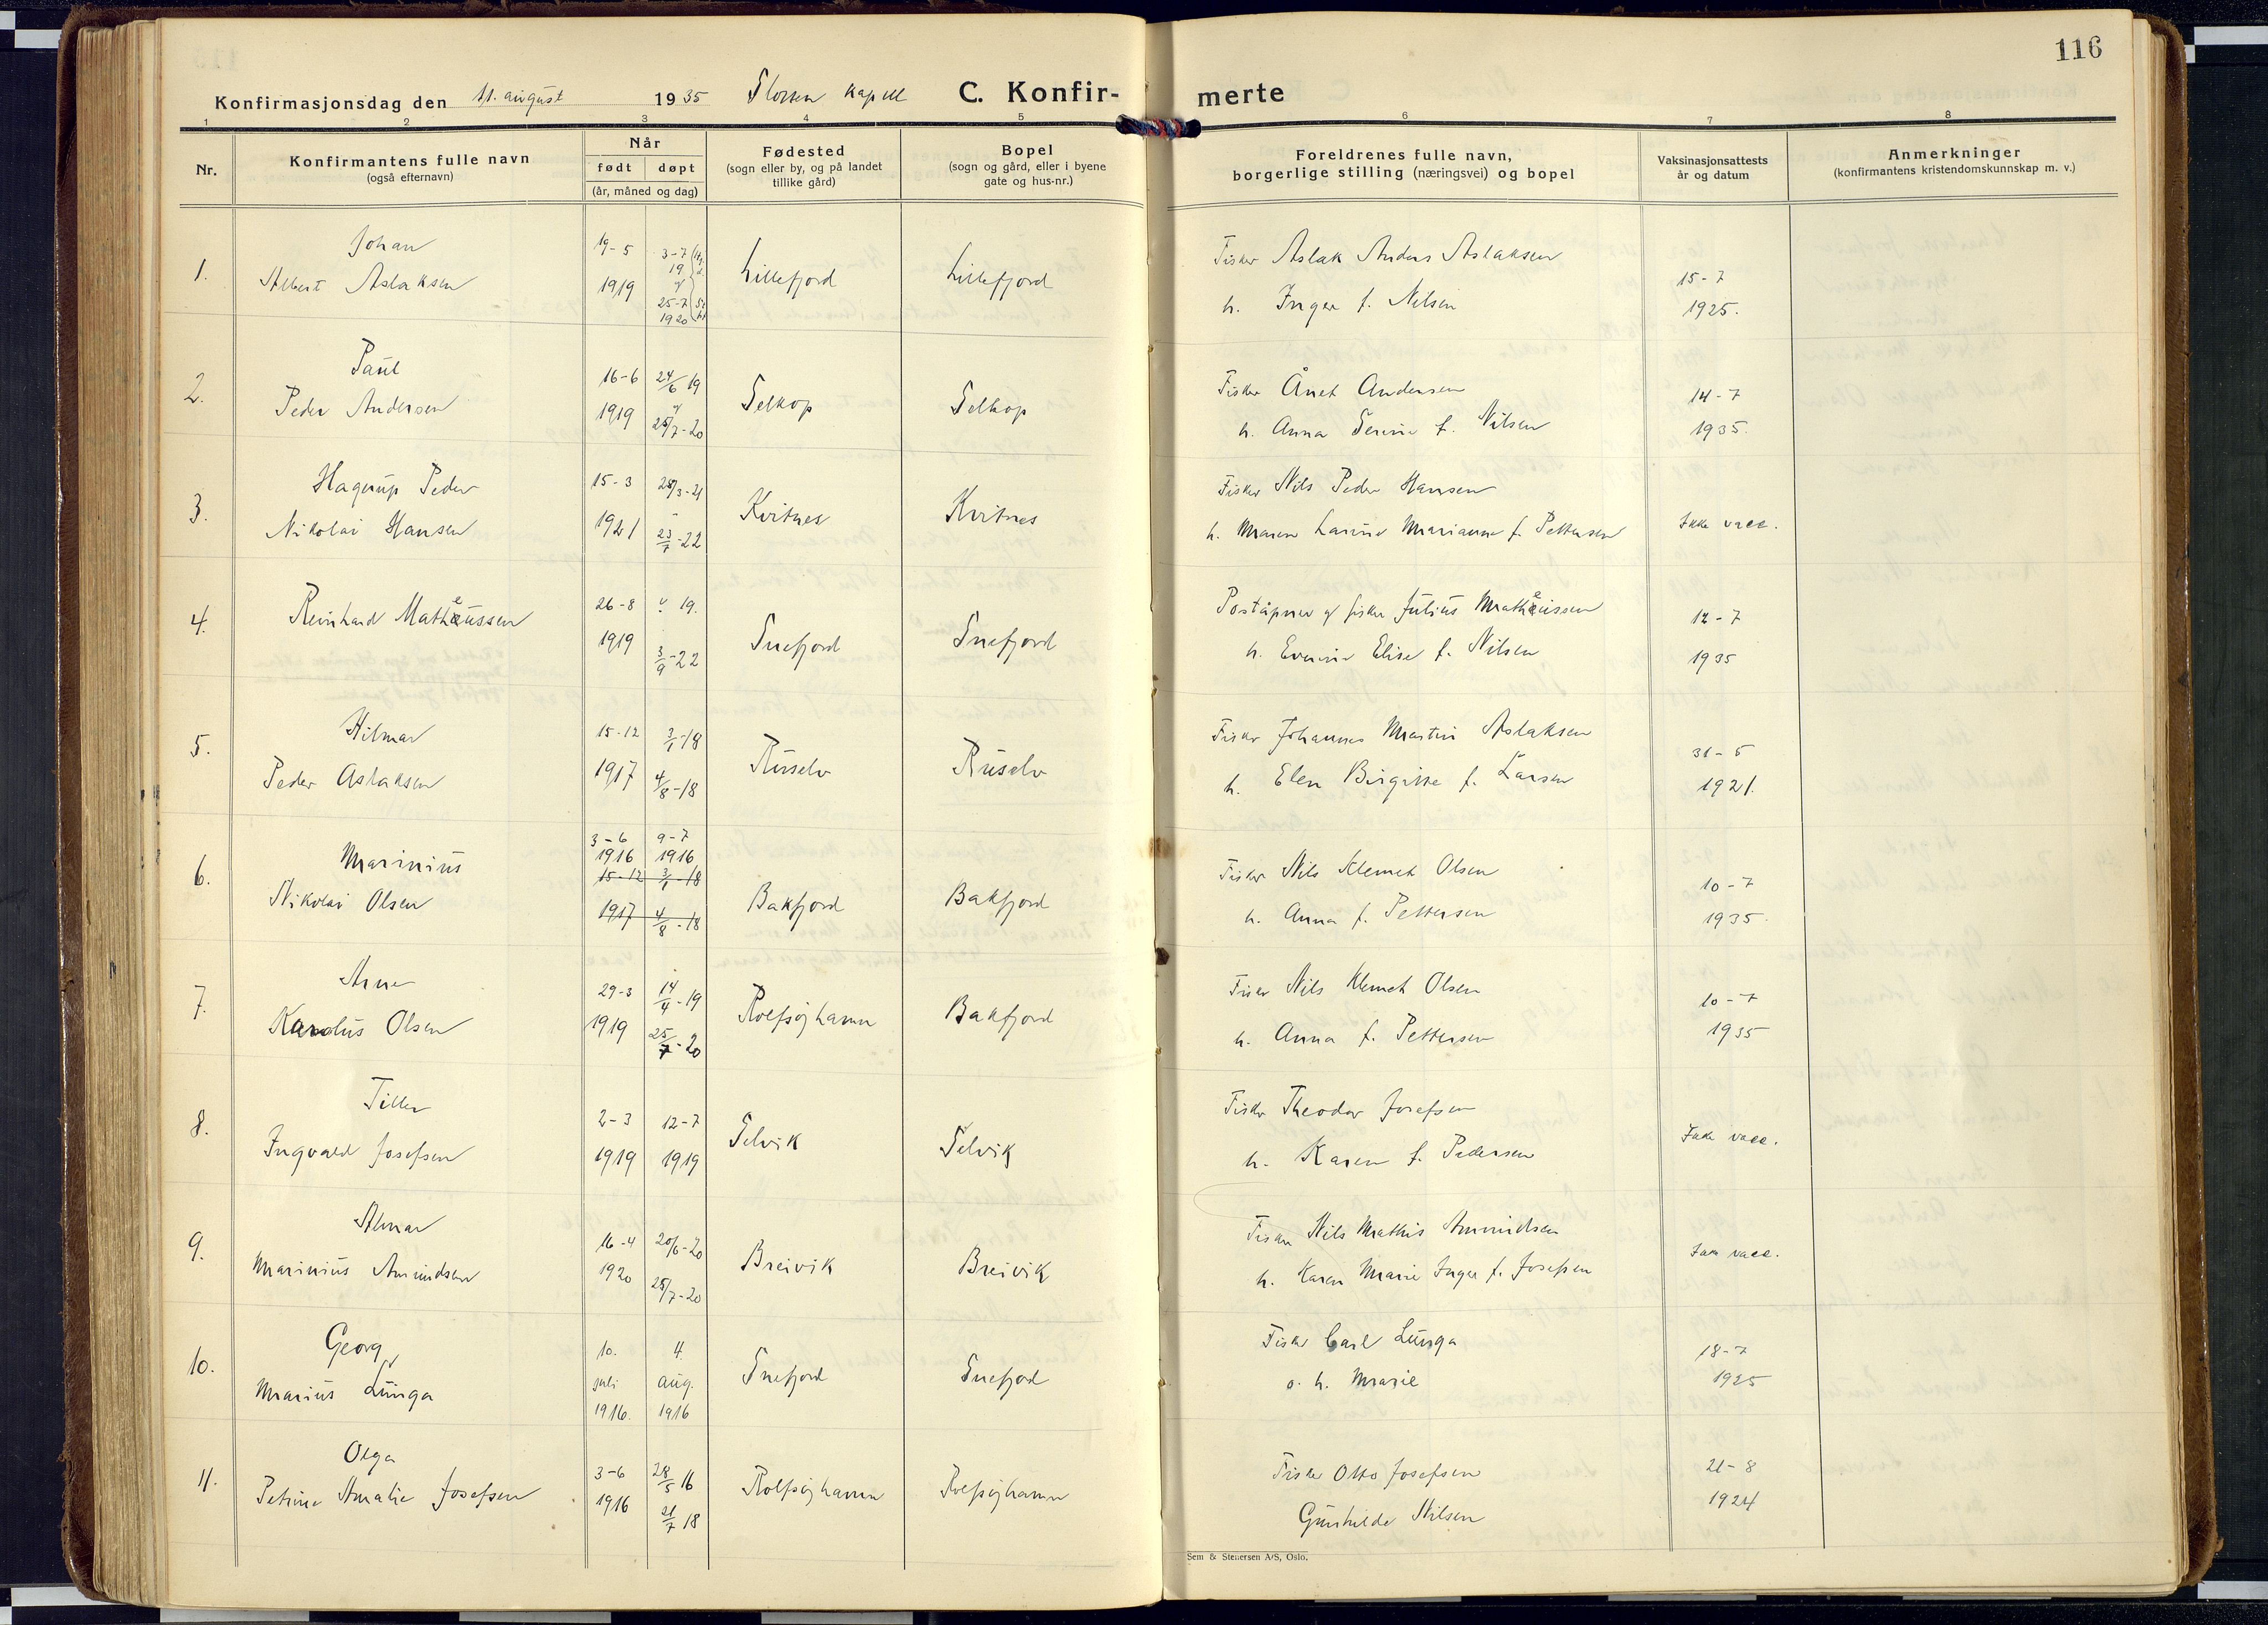 116
Konfirmasjonsdag den 11. august 1935 Slotten kapell C. Konfir- merte
1 2 3 4 5 6 7 8
Nr.
Konfirmantens fulle navn
(også efternavn)
Når
født døpt
(år, måned og dag)
Fødested
(sogn eller by, og på landet
tillike gård)
Bopel
(sogn og gård, eller i byene
gate og hus-nr.)
Foreldrenes fulle navn,
borgerlige stilling (næringsvei) og bopel
Vaksinasjonsattests
år og datum
Anmerkninger
(konfirmantens kristendomskunnskap m. v.)
1.
Johan
Albert Aslaksen
19-5
1919
3-7
19
25-7
1920
Lillefjord
Lillefjord
Fisker Aslak Anders Aslaksen
h. Inger f. Nilsen
15-7
1925.
2.
Paul
Peder Andersen
16-6
1919
24/6 19
25/7-20
Selkop
Selkop
Fisker Ånet Andersen
h. Anna Serine f. Nilsen
14-7
1935.
3.
Hagerup Peder
Nikolai Hansen
15-3
1921
28/3-21
23/7-22
Kvitnes
Kvitnes
Fisker Nils Peder Hansen
h. Maren Larine Marianne f. Pettersen
Ikke vacc.
4.
Reinhard Matheussen
26-8
1919
19.
3/9-22
Snefjord
Snefjord
Poståpner og fisker Julius Matheussen
h. Evenine Elise f. Nilsen
12-7
1935
5.
Hilmar
Peder Aslaksen
15-12
1917
3/1-18
4/8-18
Russelv
Russelv
Fisker Johannes Martin Aslaksen
h. Elen Birgitte f. Larsen
31-5
1921.
6.
Marinius
Nikolai Olsen
3-6
1916
15-12
1917
9-7
1916
3/1-18
4/8-18
Bakfjord
Bakfjord
Fisker Nils Klemet Olsen
h. Anna f. Pettersen
10-7
1935.
7.
Arne
Karolus Olsen
29-3
1919
14/4-19
25/7-20
Rolfsøyhamn
Bakfjord
Fisker Nils Klemet Olsen
h. Anna f. Pettersen
10-7
1935
8.
Tiller
Ingvald Josefsen
2-3
1919
12-7
1919
Selvik
Selvik
Fisker Theodor Josefsen
h. Karen f. Pedersen
Ikke vacc.
9.
Almar
Marinius Amundsen
16-4
1920
20/6-20
25/7-20
Breivik
Breivik
Fisker Nils Mathis Amundsen
h. Karen Marie Inger f. Josefsen
Ikke vacc.
10.
Georg
Marius Lunga
10.
juli
1916.
4.
aug.
1916
Snefjord
Snefjord
Fisker Carl Lunga
o. h. Marie
18-7
1925
11.
Olga
Petrine Amalie Josefsen
3-6
1916
28/5 16
21/7 18
Rolfsøyhamn
Rolfsøyhamn
Fisker Otto Josefsen
Gunhilde Nilsen
21-8
1924
Sem & Stenersen A/S, Oslo.